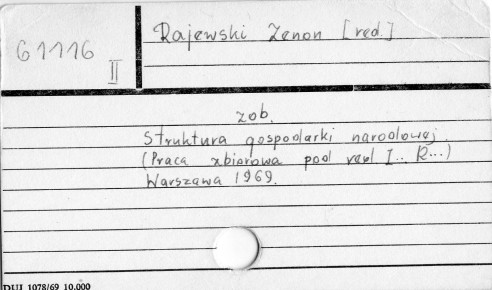 Rajewski Zenon [red.]
G 1116
II
zob.
Struktura gospodarki narodowej
(Praca zbiorowa pod red I.. R...)
Warszawa 1969.
DUJ 1078/69 10.000